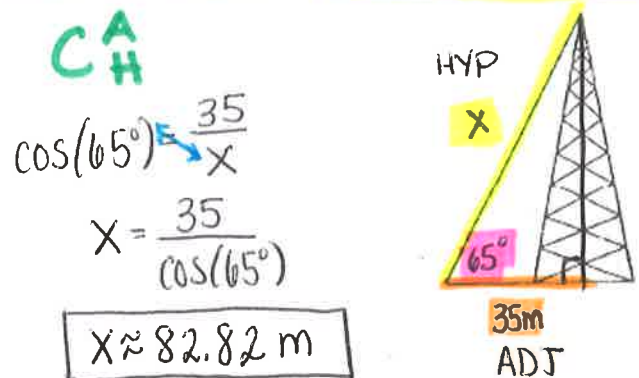 C A/H
cos(65°) = 35/X
X = 35/cos(65°)
X ≈ 82.82 m
HYP
X
65°
35m
ADJ